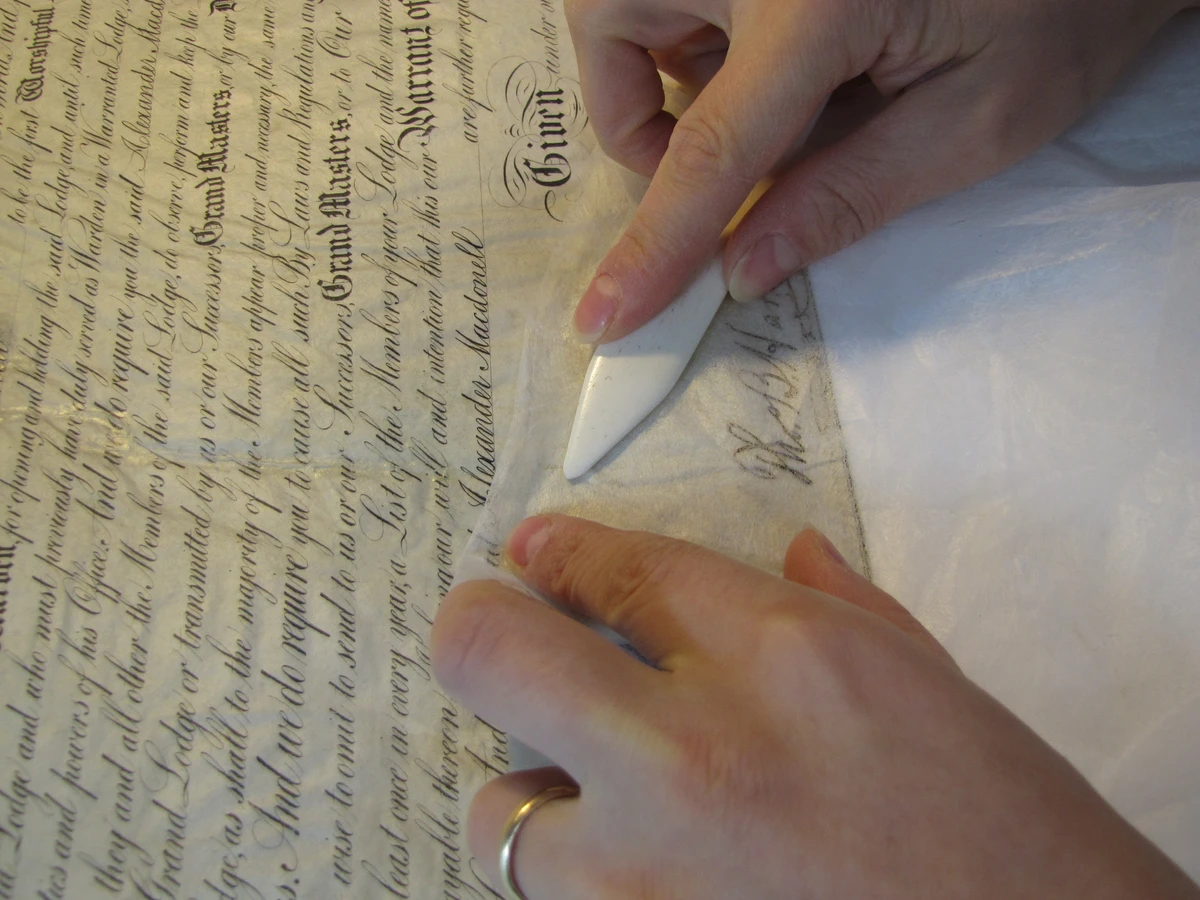 to be the first Worshipful
for opening and holding the said Lodge, and until such time
Lodge and who must previously have duly served as Warden in a Warranted Lodge
and powers of his Office. And we do require you the said Alexander
they and all other the Members of the said Lodge, do observe, perform and keep the
Grand Lodge or transmitted by us or our Successors, Grand Masters, or by our
as shall to the majority of the Members appear proper and necessary, the same
And we do require you to cause all such By Laws and Regulations
to omit to send to us or our Successors, Grand Masters, or to Our
least once in every year, a List of the Members of your Lodge and the
thereon our will and intention that this our Warrant of
And Alexander Macdonell are further
Given under